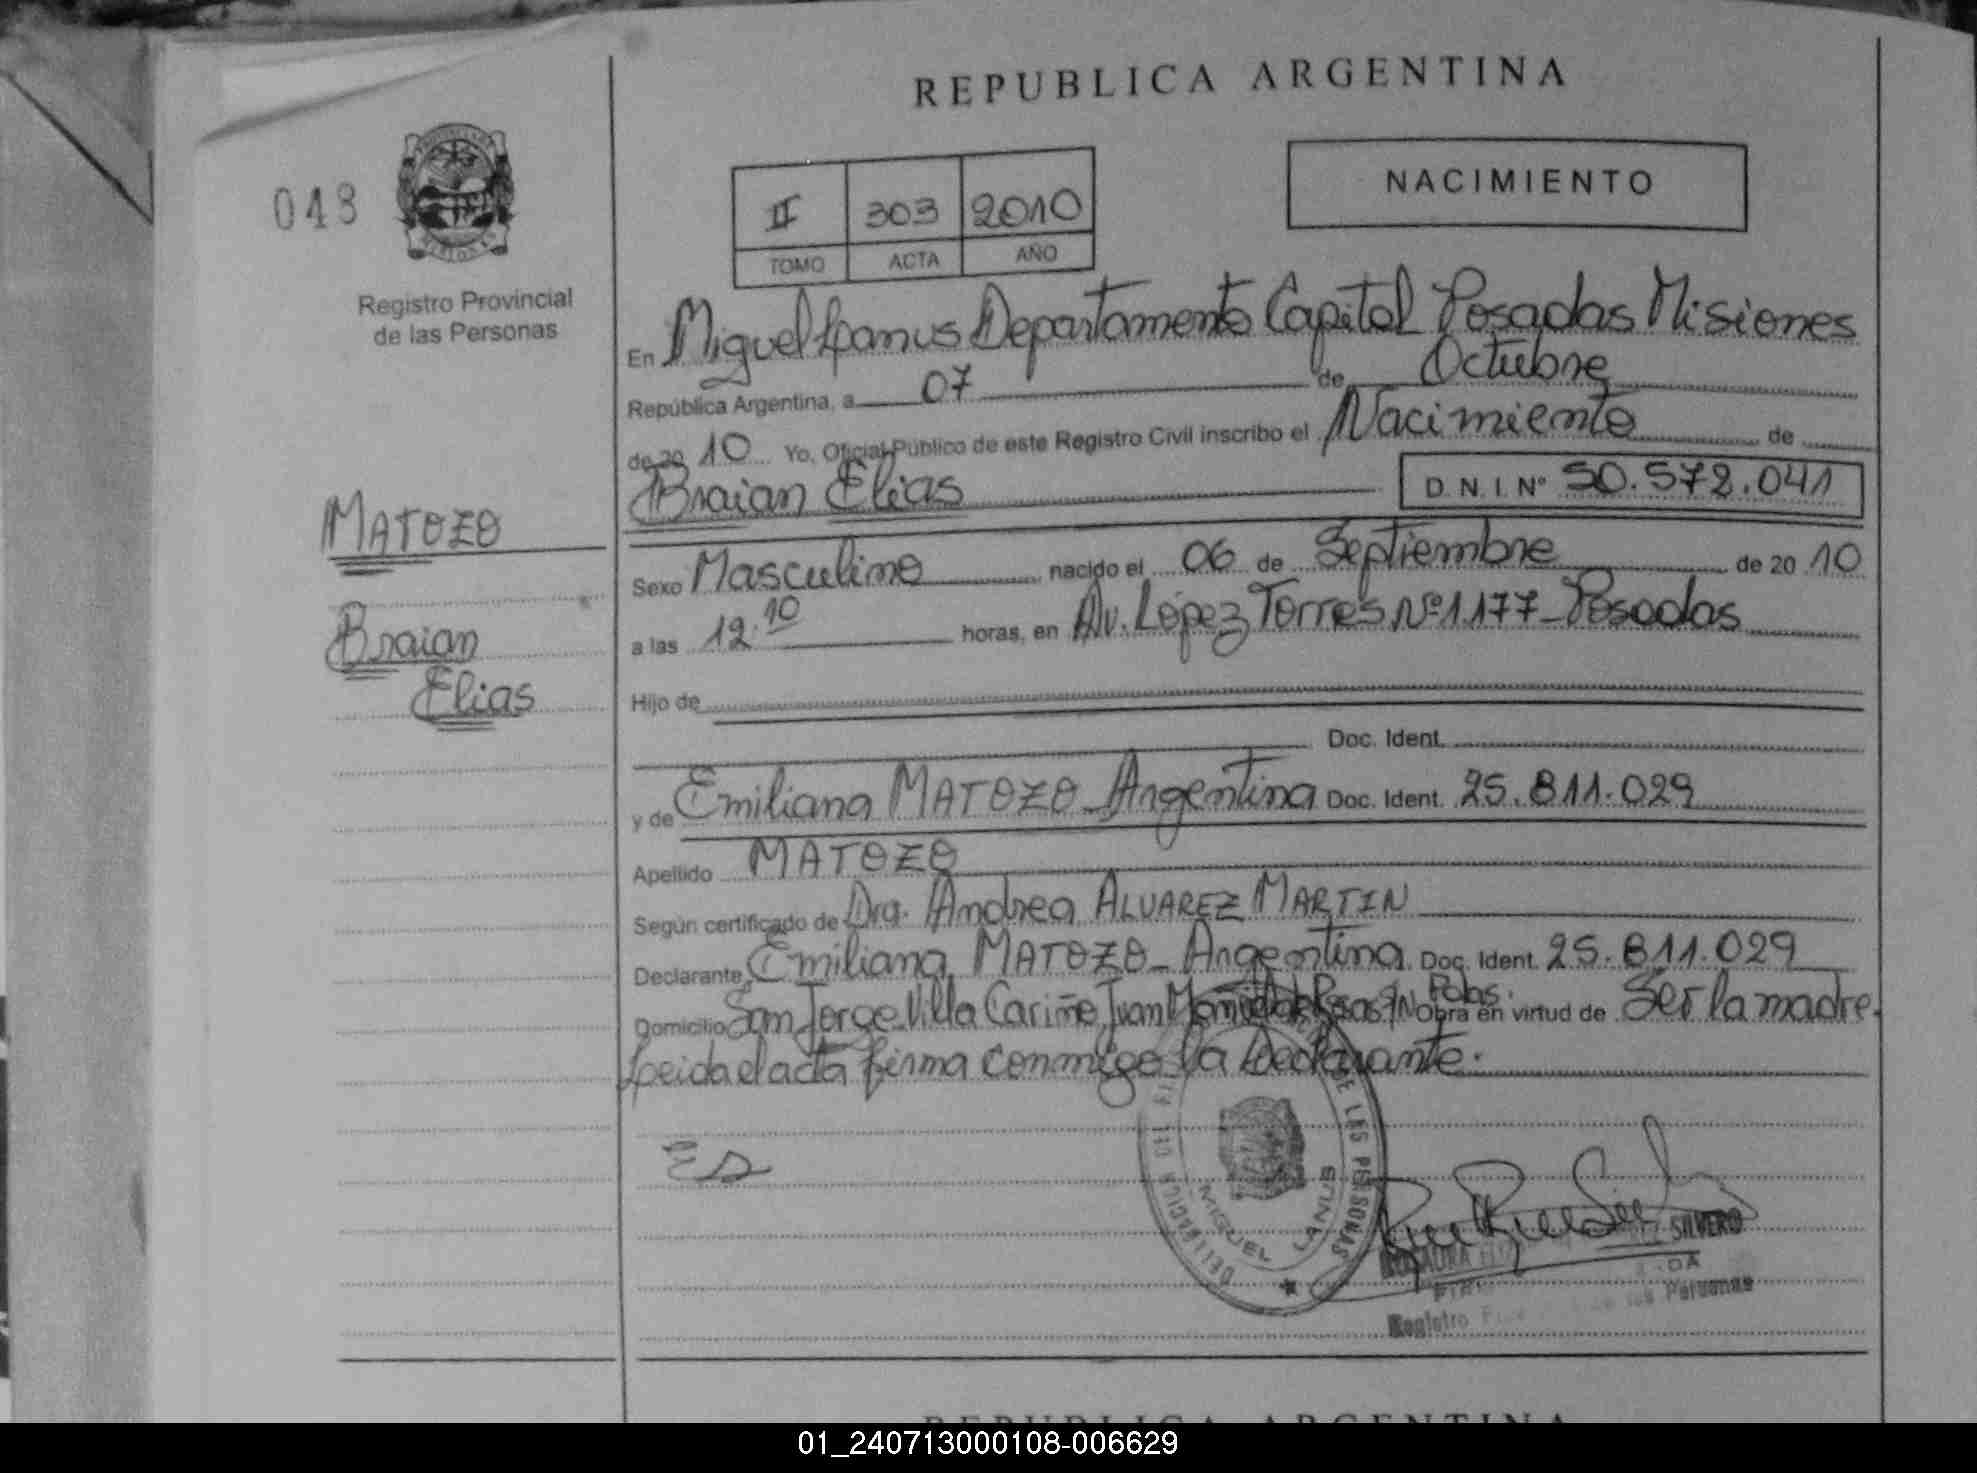 REPUBLICA ARGENTINA
048
Registro Provincial
de las Personas
II 303 2010
TOMO ACTA AÑO
NACIMIENTO
En Miguel Lanus Departamento Capital Posadas Misiones
República Argentina, a 07 de Octubre
de 20 10 Yo, Oficial Público de este Registro Civil inscribo el Nacimiento de
Braian Elias D.N.I. Nº 50.572.041
MATOZO
Braian
Elias
Sexo Masculino nacido el 06 de Septiembre de 20 10
a las 12.10 horas, en Av. López Torres Nº 1.177 - Posadas
Hijo de
Doc. Ident.
y de Emiliana MATOZO - Argentina Doc. Ident. 25.811.029
Apellido MATOZO
Según certificado de Dra. Andrea ALVAREZ MARTIN
Declarante Emiliana MATOZO - Argentina Doc. Ident. 25.811.029
Domicilio San Jorge Villa Cariño Juan Manuel de Rosas S/N Pdas. Obra en virtud de Ser la madre.
Leida el acta firma conmigo la Declarante.
DE LAS PERSONAS
MIGUEL LANUS
SILVERO
Registro
Personas
REPUBLICA ARGENTINA
01_240713000108-006629